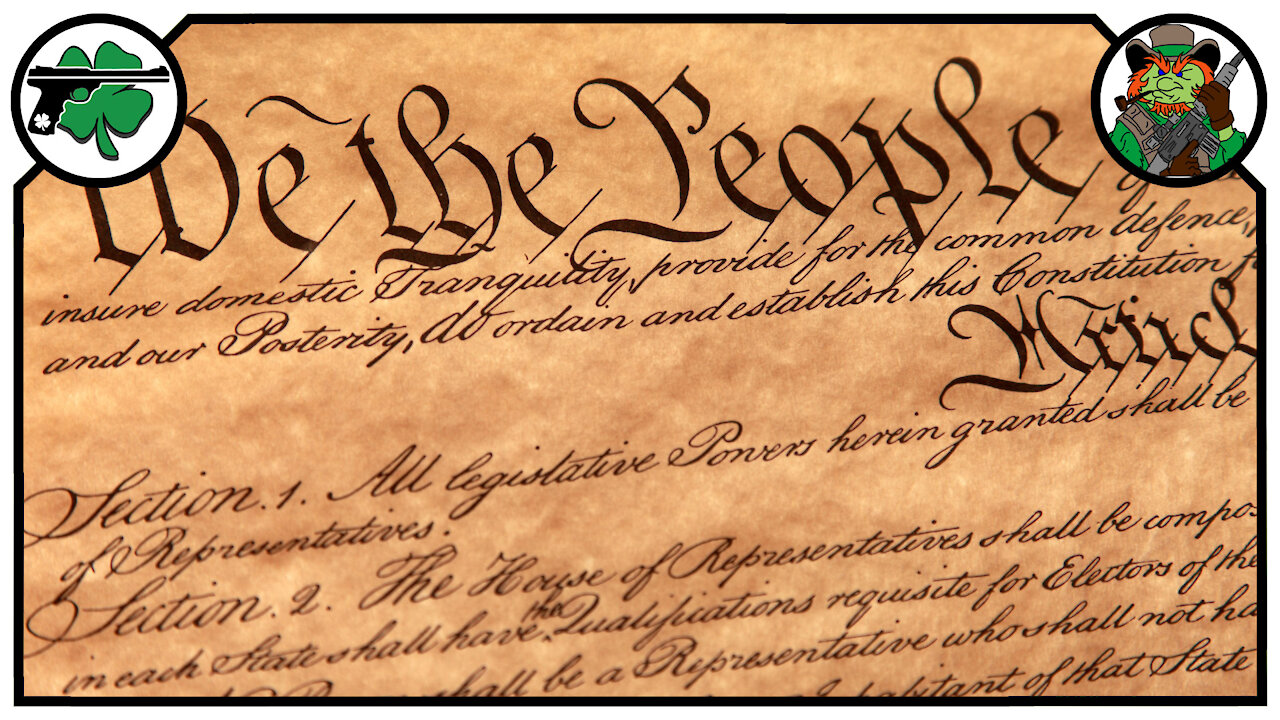 We the People
of
insure domestic Tranquility, provide for the common defence,
and our Posterity, do ordain and establish this Constitution
Articl
Section. 1. All legislative Powers herein granted shall be
of Representatives.
Section. 2. The House of Representatives shall be compos
in each State shall have the Qualifications requisite for Electors of the
shall be a Representative who shall not ha
of that State